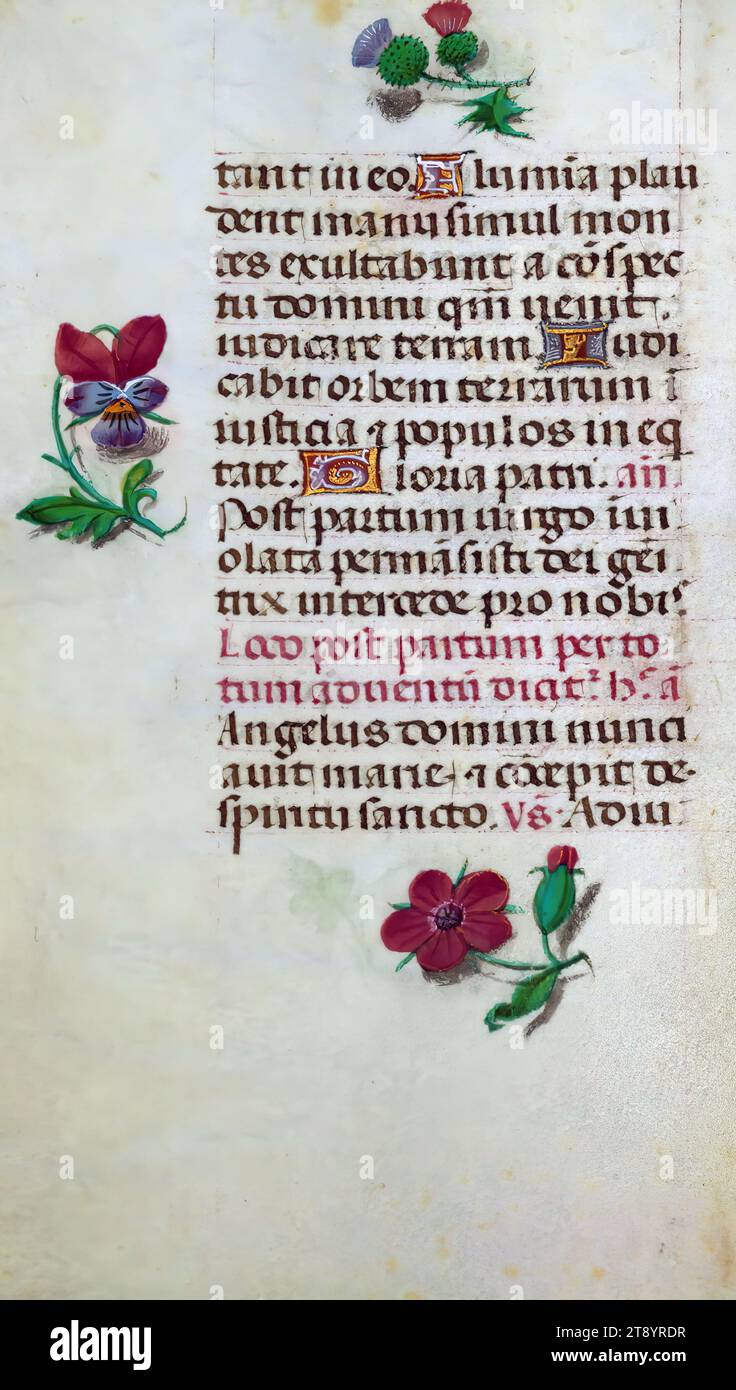 tant in eo. Flumina plau
dent manu simul mon
tes exultabunt a cōspec
tu domini qm̄ uenit.
iudicare terram. Iudi
cabit orbem terrarum ī
iusticia ⁊ populos in eq
tate. Gloria patri. añ.
Post partum uirgo inui
olata permāsisti dei gēi
trix intercede pro nobis.
Loco post partum per to
tum aduentū dicitr̄ hec ā
Angelus domini nunci
auit marie, ⁊ cōcepit de
spiritu sancto. Vs. Adiu
alamy
Image ID: 2T8YRDR
www.alamy.com